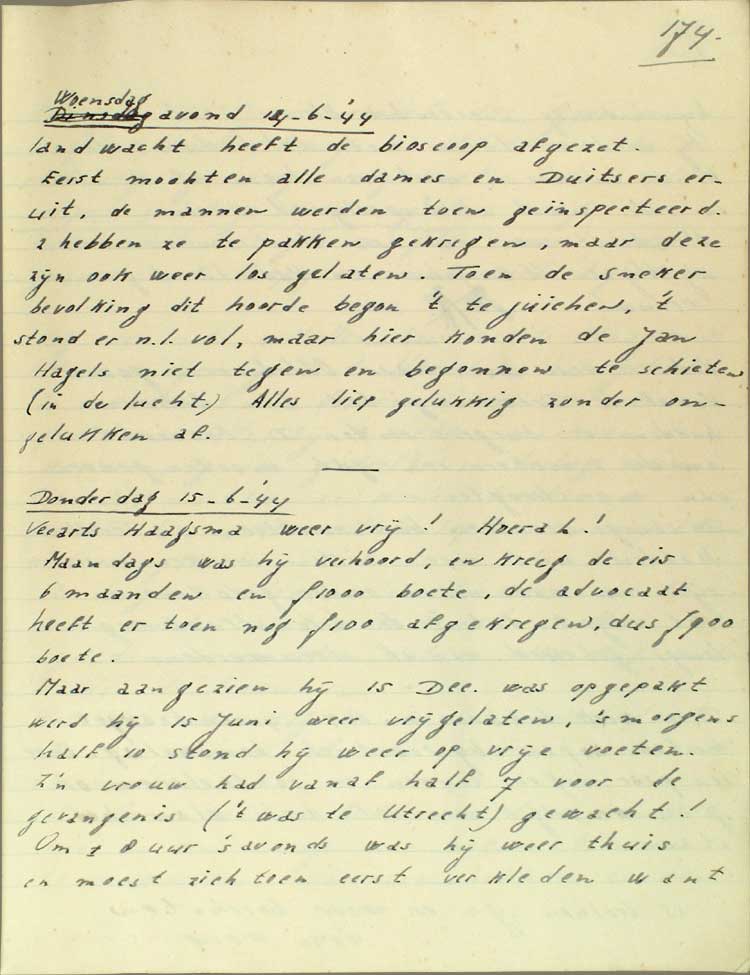 174.
Woensdag
Dinsdagavond 14-6-'44
landwacht heeft de bioscoop afgezet.
Eerst mochten alle dames en Duitsers er-
uit, de mannen werden toen geïnspecteerd.
2 hebben ze te pakken gekregen, maar deze
zijn ook weer los gelaten. Toen de Sneker
bevolking dit hoorde begon 't te juichen, 't
stond er n.l. vol, maar hier konden de Jan
Hagels niet tegen en begonnen te schieten
(in de lucht.) Alles liep gelukkig zonder on-
gelukken af.
Donderdag 15-6-'44
Veearts Haagsma weer vrij! Hoerah!
Maandags was hij verhoord, en kreeg de eis
6 maanden en f1000 boete, de advocaat
heeft er toen nog f100 afgekregen, dus f900
boete.
Maar aangezien hij 15 Dec. was opgepakt
werd hij 15 Juni weer vrijgelaten, 's morgens
half 10 stond hij weer op vrije voeten.
Z'n vrouw had vanaf half 7 voor de
gevangenis ('t was te Utrecht) gewacht!
Om ± 8 uur 's avonds was hij weer thuis
en moest zich toen eerst verkleden want